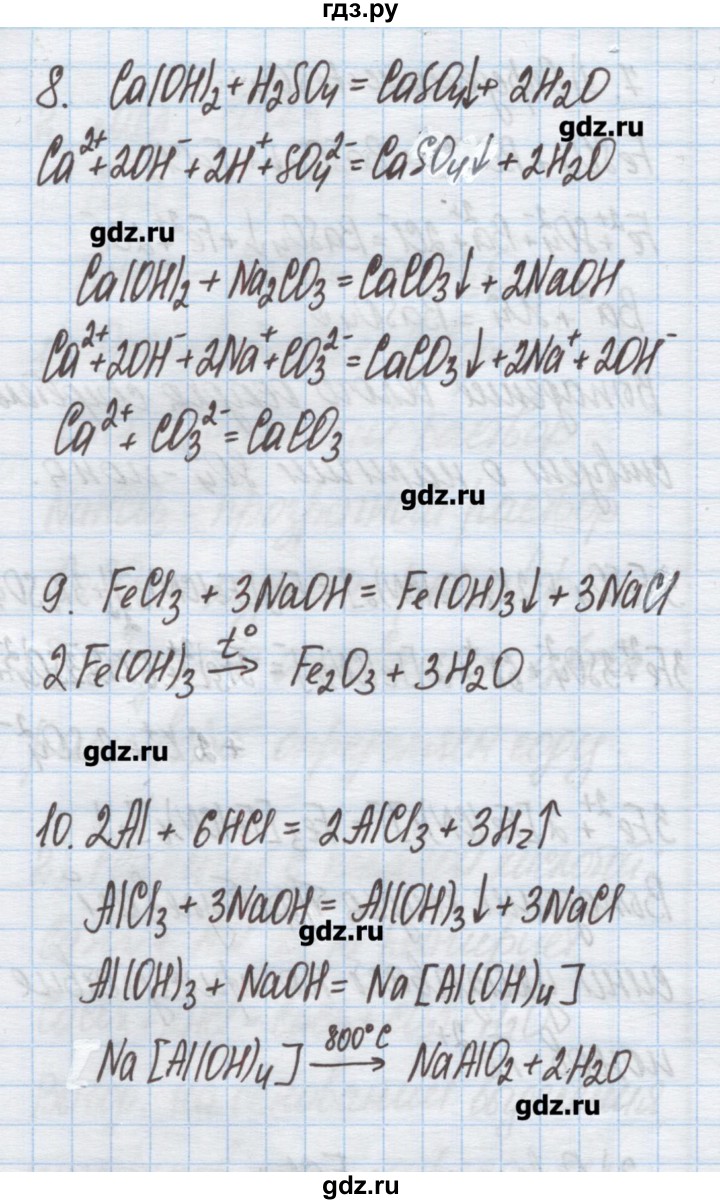 гдз.ру
8. Ca(OH)₂ + H₂SO₄ = CaSO₄↓ + 2H₂O
gdz.ru
Ca²⁺ + 2OH⁻ + 2H⁺ + SO₄²⁻ = CaSO₄↓ + 2H₂O
gdz.ru
Ca(OH)₂ + Na₂CO₃ = CaCO₃↓ + 2NaOH
Ca²⁺ + 2OH⁻ + 2Na⁺ + CO₃²⁻ = CaCO₃↓ + 2Na⁺ + 2OH⁻
Ca²⁺ + CO₃²⁻ = CaCO₃
gdz.ru
9. FeCl₃ + 3NaOH = Fe(OH)₃↓ + 3NaCl
2Fe(OH)₃ t°→ Fe₂O₃ + 3H₂O
gdz.ru
10. 2Al + 6HCl = 2AlCl₃ + 3H₂↑
AlCl₃ + 3NaOH = Al(OH)₃↓ + 3NaCl
gdz.ru
Al(OH)₃ + NaOH = Na[Al(OH)₄]
Na[Al(OH)₄] 800°C→ NaAlO₂ + 2H₂O
gdz.ru